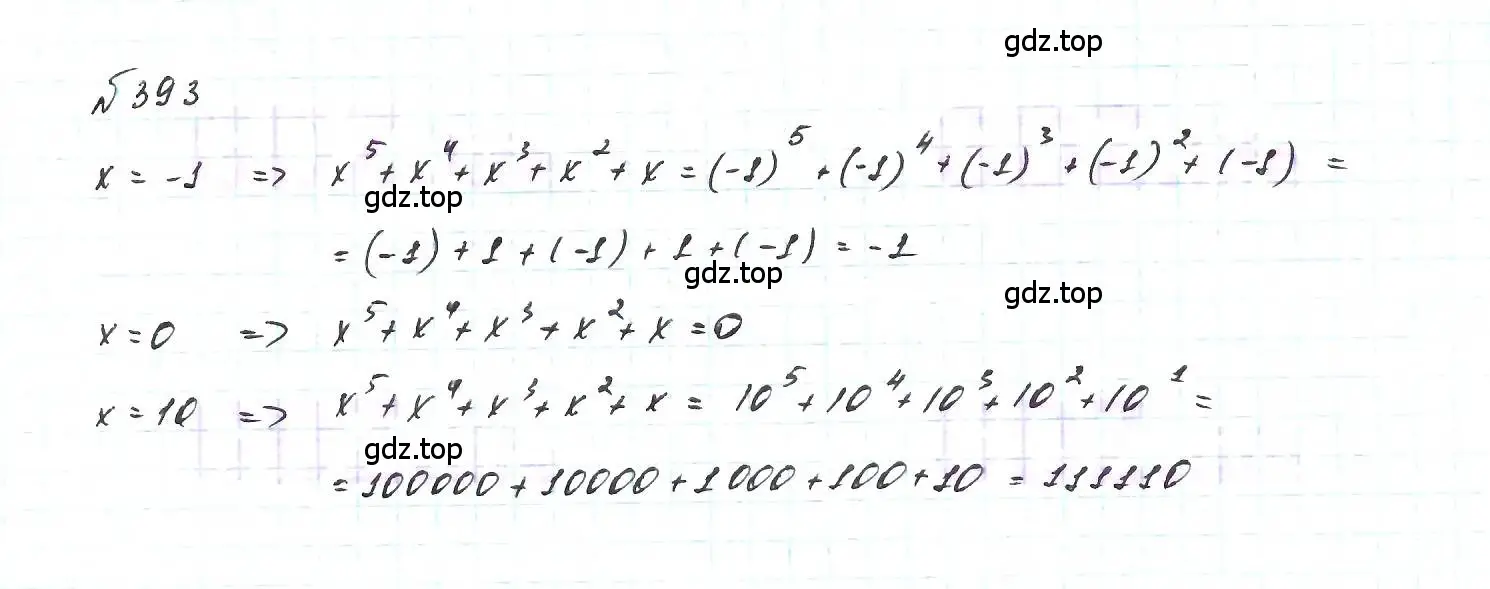 gdz.top
№393
x = -1 => x⁵ + x⁴ + x³ + x² + x = (-1)⁵ + (-1)⁴ + (-1)³ + (-1)² + (-1) =
gdz.top
= (-1) + 1 + (-1) + 1 + (-1) = -1
gdz.top
gdz.top
x = 0 => x⁵ + x⁴ + x³ + x² + x = 0
x = 10 => x⁵ + x⁴ + x³ + x² + x = 10⁵ + 10⁴ + 10³ + 10² + 10¹ =
gdz.top
= 100000 + 10000 + 1000 + 100 + 10 = 111110